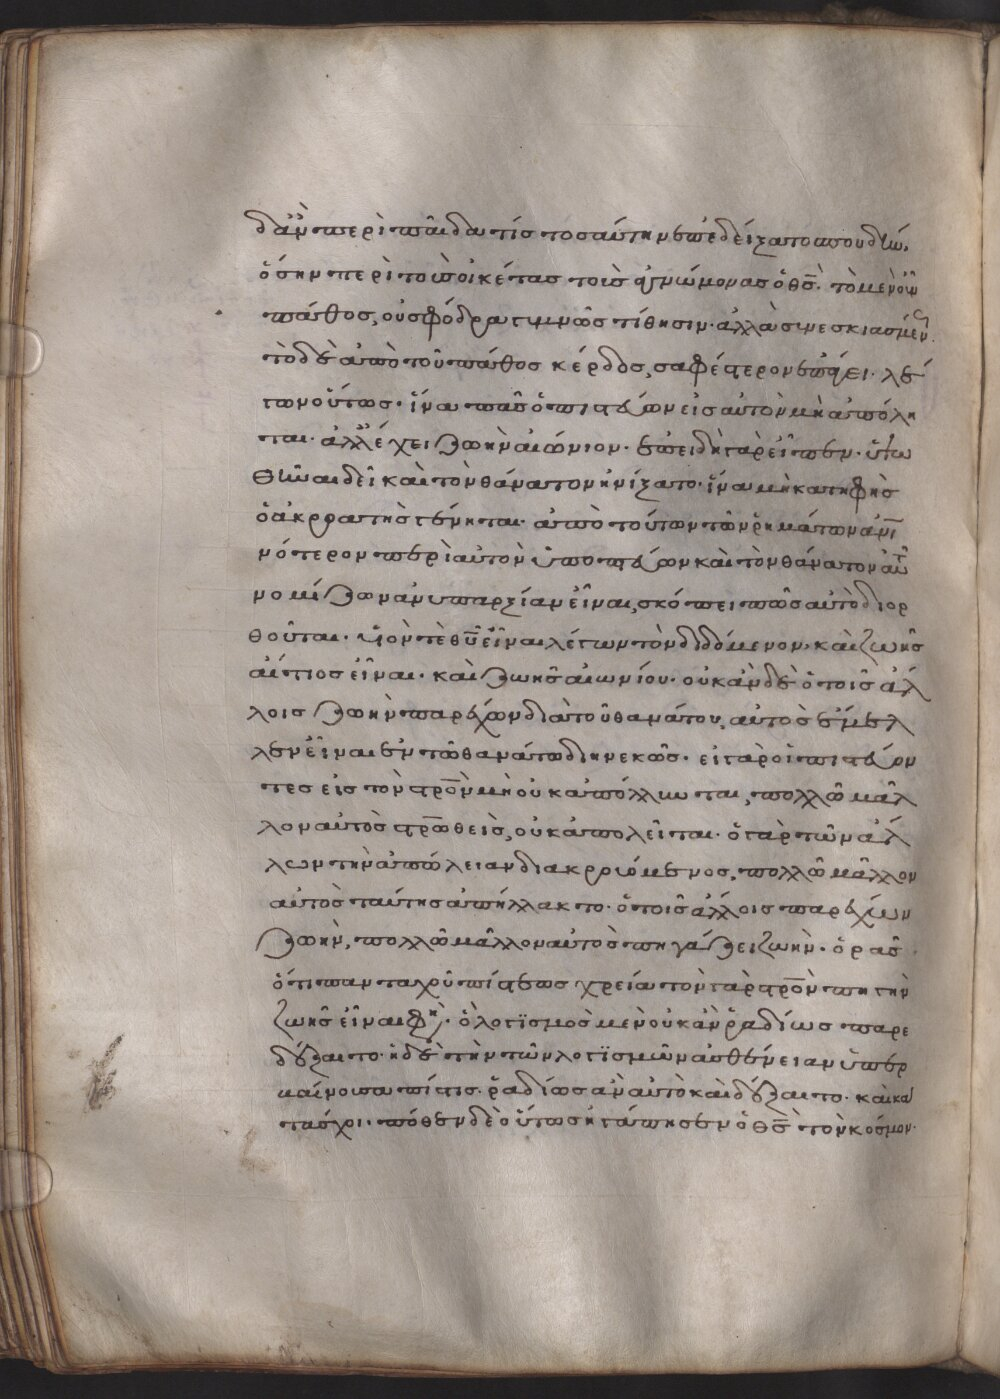 δ' ἂν περὶ παῖδά τις τοσαύτην ἐπεδείξατο σπουδὴν,
ὅσην περὶ τοὺς οἰκέτας τοὺς ἀγνώμονας ὁ θς̅. τὸ μὲν οὖν
πάθος, οὐ σφόδρα γυμνῶς τίθησιν. ἀλλὰ συνεσκιασμένως.
τὸ δὲ ἀπὸ τοῦ πάθους κέρδος, σαφέστερον ἐπάγει. λέ
γων οὕτως. ἵνα πᾶς ὁ πιστεύων εἰς αὐτὸν μὴ ἀπόλη
ται. ἀλλ' ἔχει ζωὴν αἰώνιον. ἐπειδὴ γὰρ εἶπεν. ὑψω
θῆναι δεῖ καὶ τὸν θάνατον ἠνίξατο. ἵνα μὴ κατηφὴς
ὁ ἀκροατὴς γένηται. ἀπὸ τούτων τῶν ῥημάτων ἀν̅ι
νότερον περὶ αὐτοῦ ὑποπτεύων καὶ τὸν θάνατον αὐτοῦ
νομίζων ἀνυπαρξίαν εἶναι, σκόπει πῶς αὐτὸ διορ
θοῦται. υἱόν τε θυ̅ εἶναι λέγων τὸν διδόμενον, καὶ ζωῆς
αἴτιος εἶναι. καὶ ζωῆς αἰωνίου. οὐκ ἂν δὲ ὁ τοῖς ἄλ
λοις ζωὴν παρέχων διὰ τοῦ θανάτου, αὐτὸς ἔμελ
λεν εἶναι ἐν τῶ θανάτω διηνεκῶς. εἰ γὰρ οἱ πιστεύον
τες εἰς τὸν στρο̅ν μὴ οὐκ ἀπόλλυνται, πολλῶ μᾶλ
λον αὐτὸς στρω̅θεὶς, οὐκ ἀπολεῖται. ὁ γὰρ τῶν ἄλ
λων τὴν ἀπώλειαν διακρουόμενος, πολλῶ μᾶλλον
αὐτὸς ταύτης ἀπήλλακτο. ὁ τοῖς ἄλλοις παρέχων
ζωὴν, πολλῶ μᾶλλον αὐτὸς πηγάζει ζωήν. ὁρᾶς
ὅτι πανταχοῦ πίστεως χρεία τὸν γὰρ στρο̅ν πηγὴν
ζωῆς εἶναί φη. ὁ λογϊσμὸς μὲν οὐκ ἂν ῥαδίως παρε
δέξατο. ἡ δὲ τὴν τῶν λογϊσμῶν ἀσθένειαν ὑπερ
βαίνουσα πίστις. ῥαδίως ἂν αὐτὸ καὶ δέξαιτο. καὶ κα
τάσχοι. πόθεν δὲ οὕτως ἠγάπησεν ὁ θς̅ τὸν κόσμον.